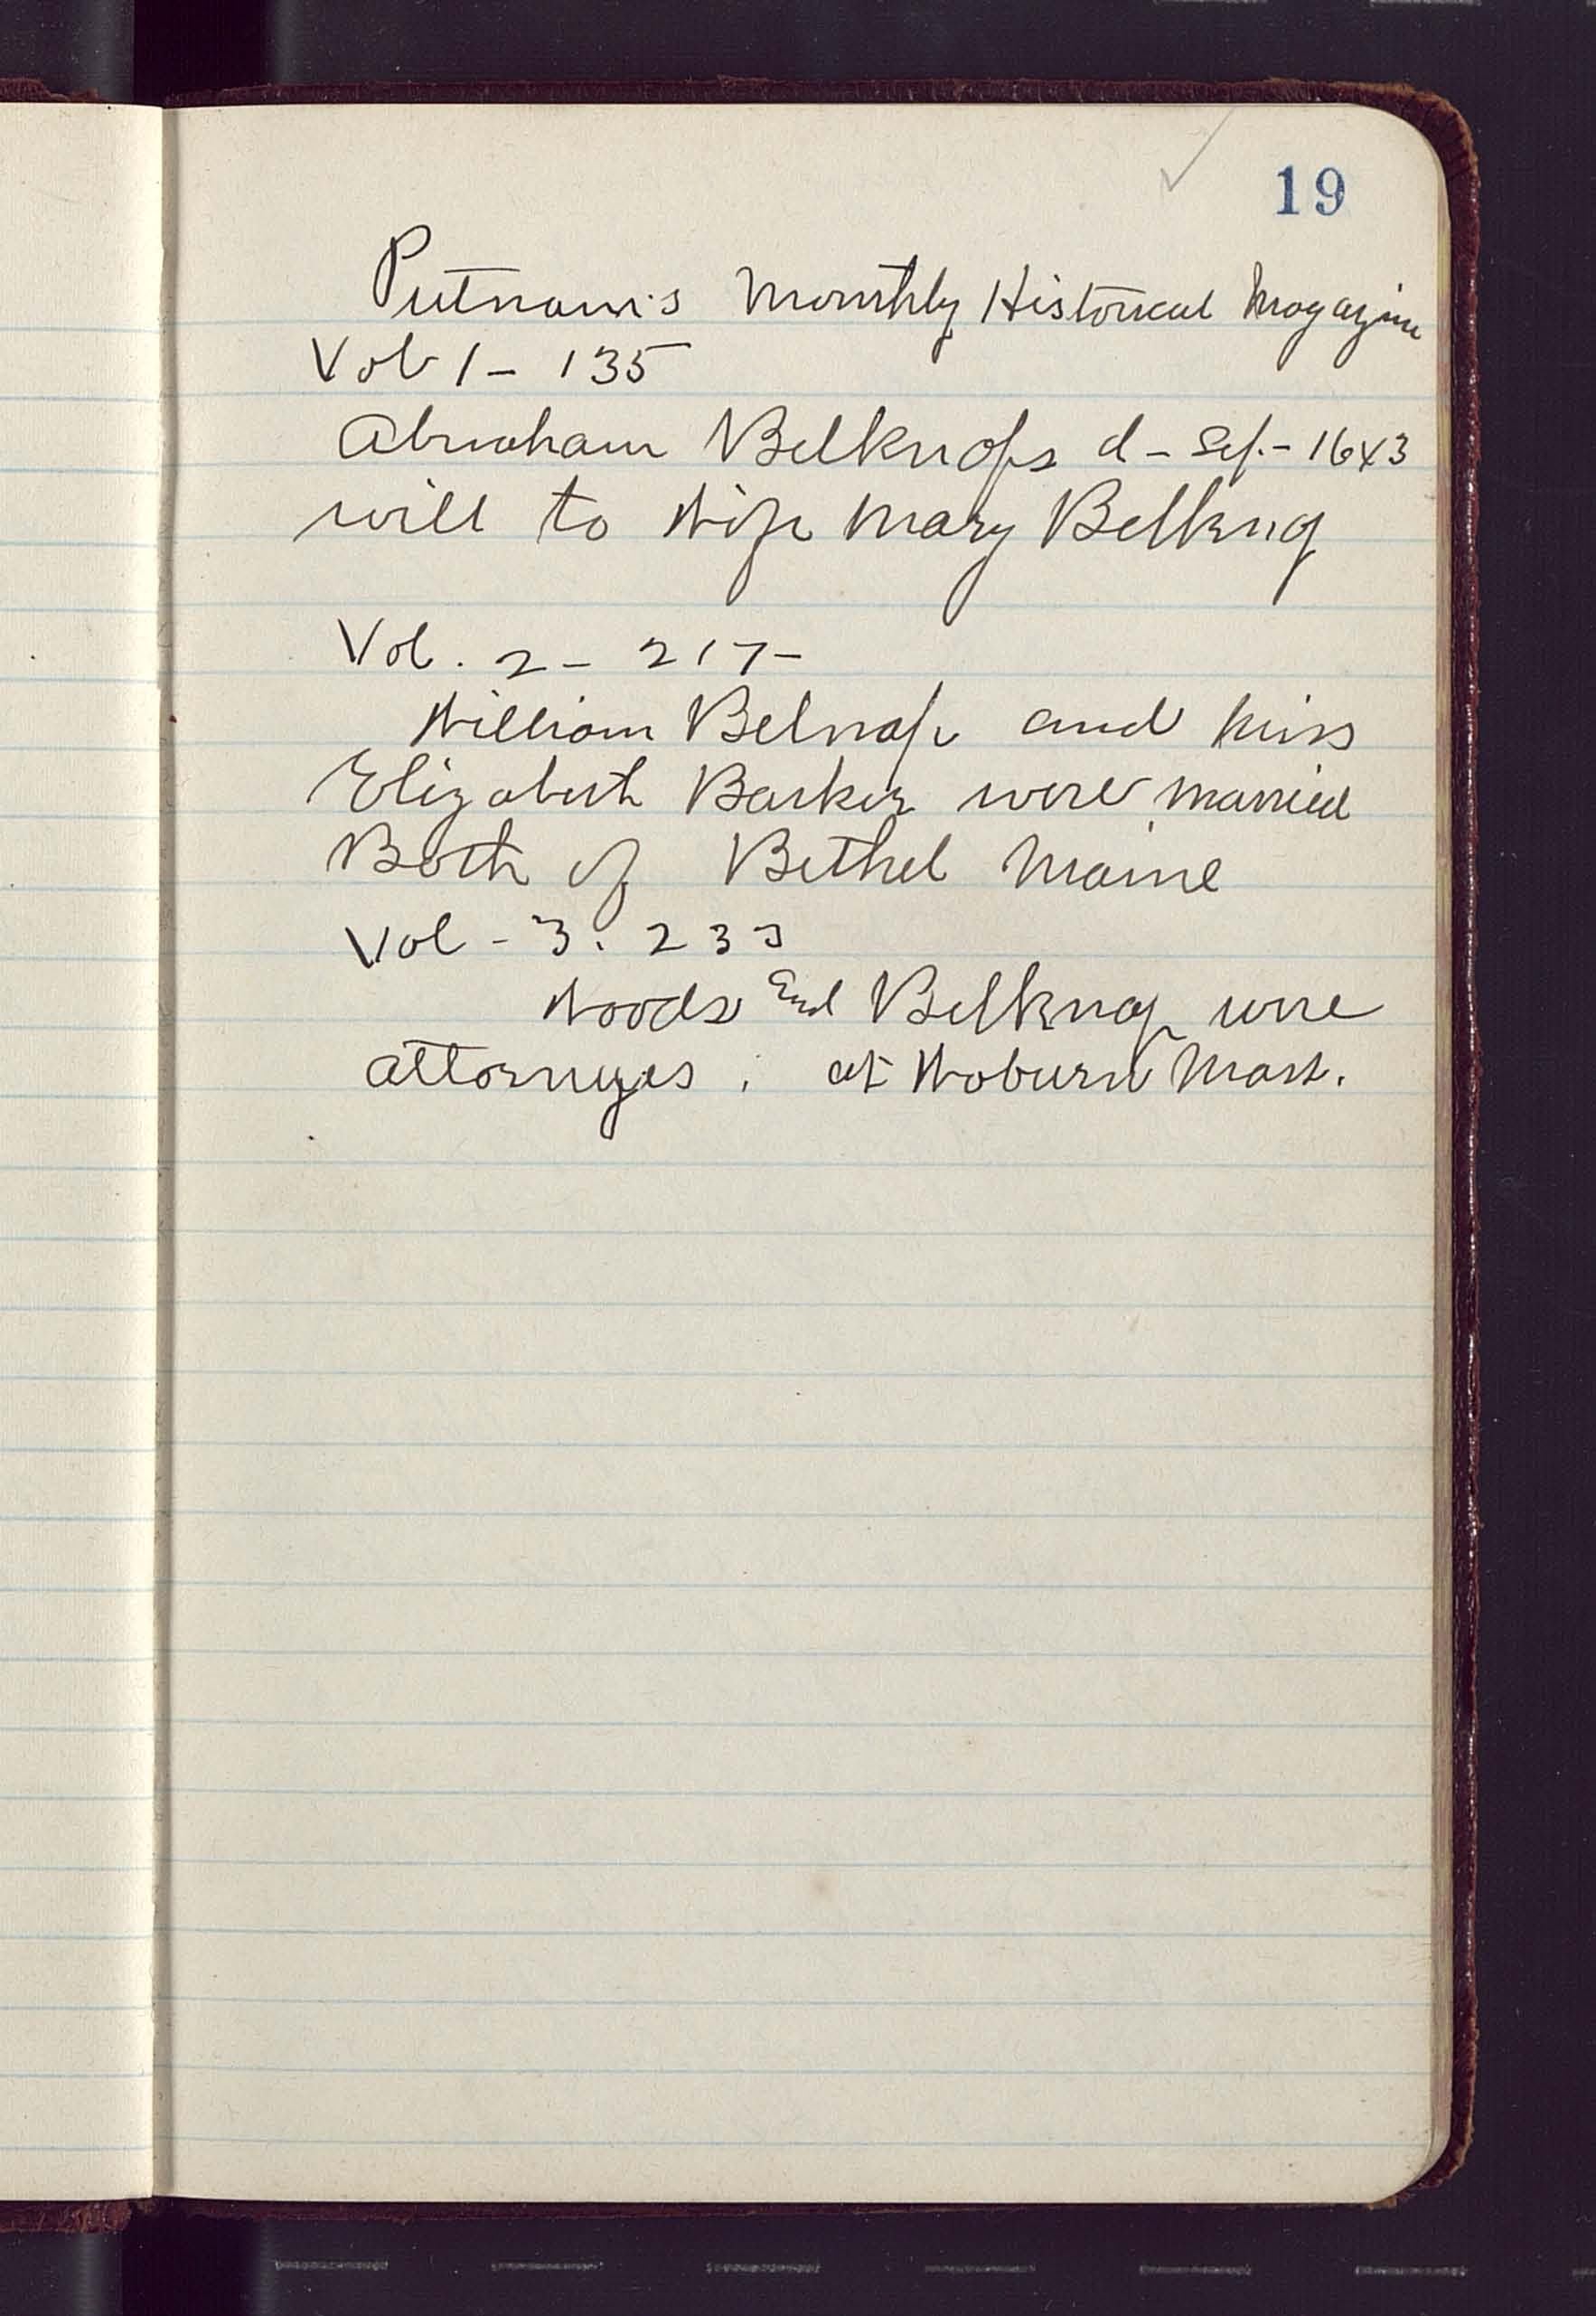 19
Putnam's Monthly Historical Magazine
Vol 1 - 135
Abraham Belknaps d - Sep. - 1643
will to wife Mary Belknap
Vol. 2 - 217 -
William Belnap and Miss
Elizabeth Barker were married
Both of Bethel Maine
Vol - 3. 233
Woods and Belknap were
attorneyes. at Woburn Mass.